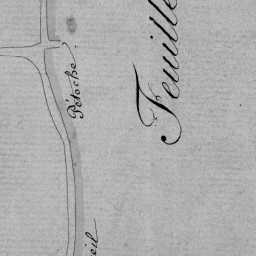 Pétoche
Feuille
eil